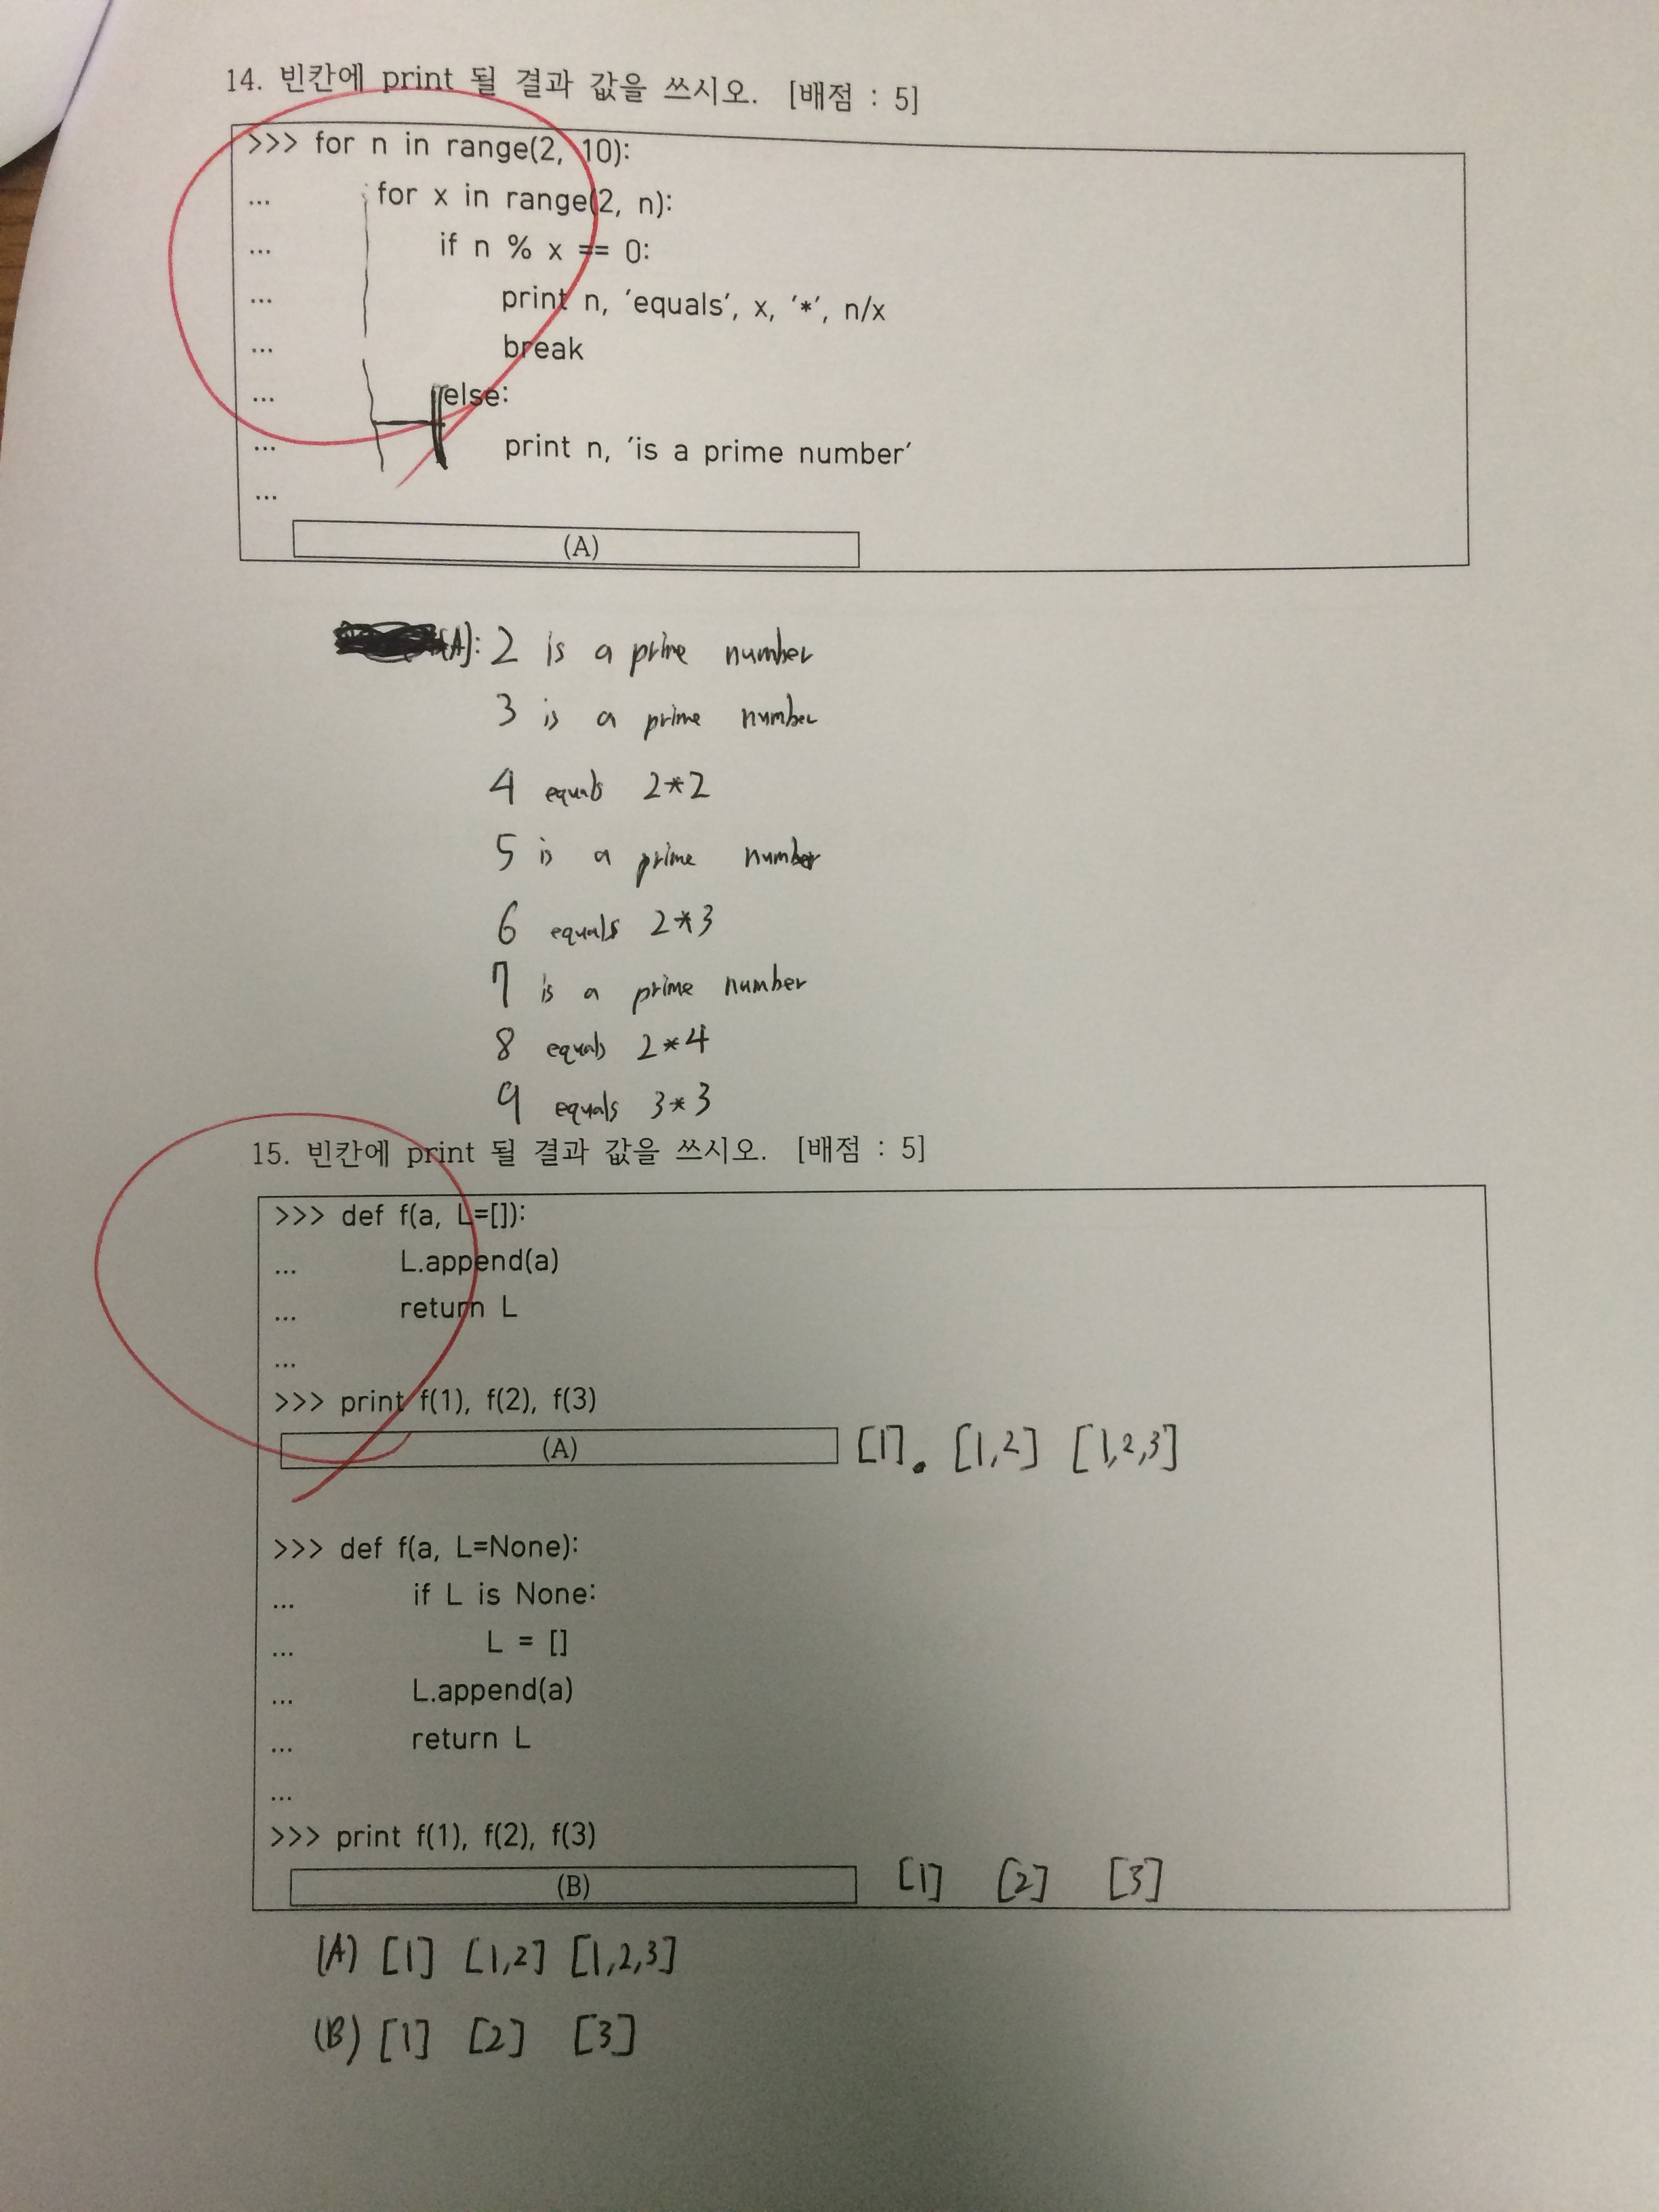 14. 빈칸에 print 될 결과 값을 쓰시오. [배점 : 5]
>>> for n in range(2, 10):
... for x in range(2, n):
... if n % x == 0:
... print n, 'equals', x, '*', n/x
... break
... else:
... print n, 'is a prime number'
...
(A)
(A): 2 is a prime number
3 is a prime number
4 equals 2*2
5 is a prime number
6 equals 2*3
7 is a prime number
8 equals 2*4
9 equals 3*3
15. 빈칸에 print 될 결과 값을 쓰시오. [배점 : 5]
>>> def f(a, L=[]):
... L.append(a)
... return L
...
>>> print f(1), f(2), f(3)
(A) [1]. [1,2] [1,2,3]
>>> def f(a, L=None):
... if L is None:
... L = []
... L.append(a)
... return L
...
>>> print f(1), f(2), f(3)
(B) [1] [2] [3]
(A) [1] [1,2] [1,2,3]
(B) [1] [2] [3]